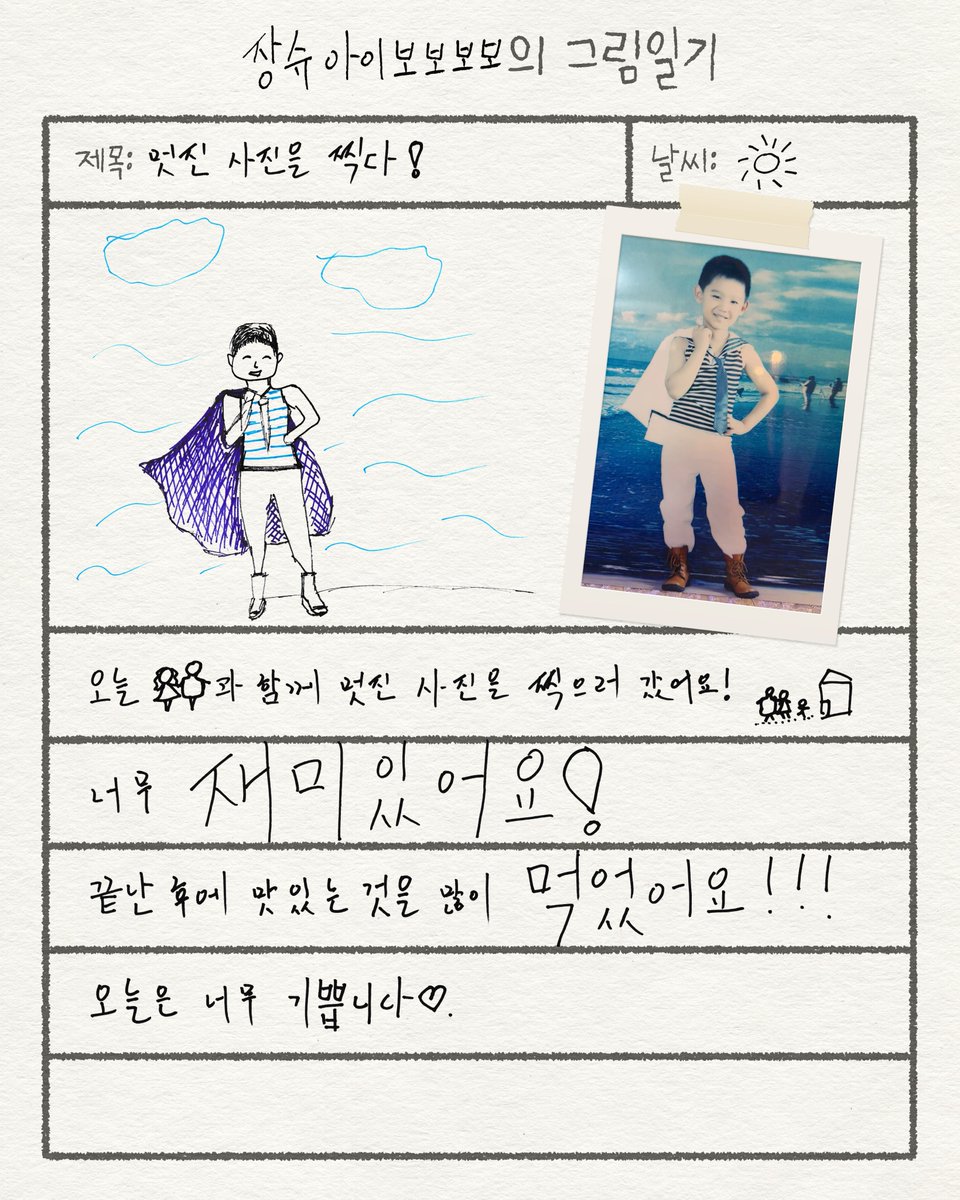 장슈아이보보보보의 그림일기
제목: 멋진 사진을 찍다!
날씨:
오늘 과 함께 멋진 사진을 찍으러 갔어요!
너무 재미있어요!
끝난 후에 맛있는 것을 많이 먹었어요!!!
오늘은 너무 기쁩니다♡.